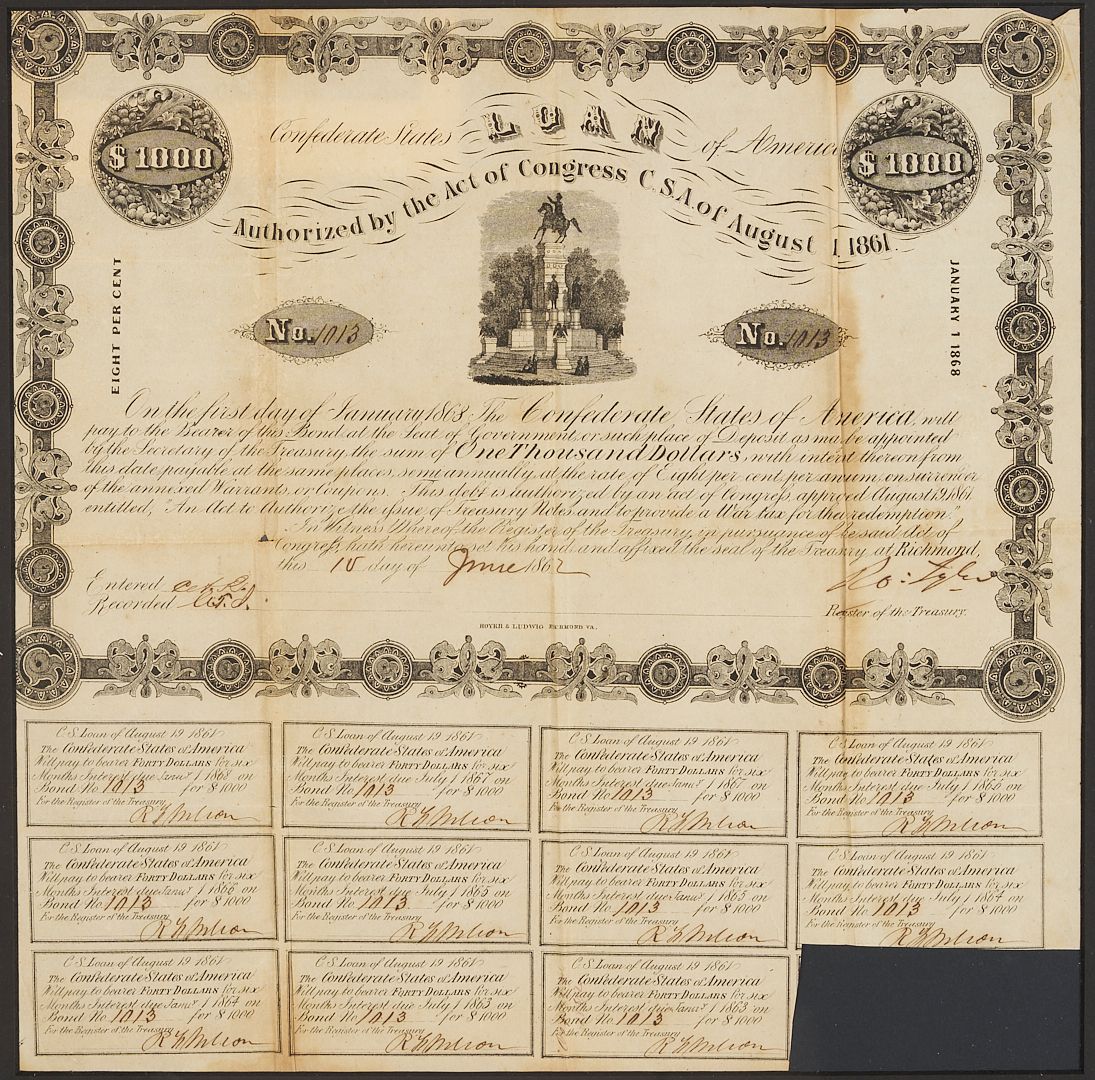 Confederate States LOAN of America
$ 1000
$ 1000
Authorized by the Act of Congress C.S.A of August 1, 1861
EIGHT PER CENT
JANUARY 1 1868
No. 1013
No. 1013
On the first day of January 1868 The Confederate States of America, will
pay to the Bearer of this Bond at the Seat of Government, or such place of Deposit as may be appointed
by the Secretary of the Treasury, the sum of One Thousand Dollars, with interest thereon from
this date payable at the same places, semi annually, at the rate of Eight per cent per annum, on surrender
of the annexed Warrants, or Coupons. This debt is authorized by an act of Congress, approved August 19, 1861
entitled, "An Act to Authorize the issue of Treasury Notes and to provide a War tax for their redemption."
In Witness Whereof the Register of the Treasury, in pursuance of the said Act of
Congress, hath hereunto set his hand and affixed the seal of the Treasury at Richmond,
this 10 day of June 1862
Entered
Ro: Tyler
Recorded
Register of the Treasury.
HOYER & LUDWIG RICHMOND VA.
C.S. Loan of August 19 1861
The Confederate States of America
Will pay to bearer FORTY DOLLARS for six
Months Interest due Jany 1 1868 on
Bond No 1013 for $ 1000
For the Register of the Treasury
C.S. Loan of August 19 1861
The Confederate States of America
Will pay to bearer FORTY DOLLARS for six
Months Interest due July 1 1867 on
Bond No 1013 for $ 1000
For the Register of the Treasury
C.S. Loan of August 19 1861
The Confederate States of America
Will pay to bearer FORTY DOLLARS for six
Months Interest due Jany 1 1867 on
Bond No 1013 for $ 1000
For the Register of the Treasury
C.S. Loan of August 19 1861
The Confederate States of America
Will pay to bearer FORTY DOLLARS for six
Months Interest due July 1 1866 on
Bond No 1013 for $ 1000
For the Register of the Treasury
C.S. Loan of August 19 1861
The Confederate States of America
Will pay to bearer FORTY DOLLARS for six
Months Interest due Jany 1 1866 on
Bond No 1013 for $ 1000
For the Register of the Treasury
C.S. Loan of August 19 1861
The Confederate States of America
Will pay to bearer FORTY DOLLARS for six
Months Interest due July 1 1865 on
Bond No 1013 for $ 1000
For the Register of the Treasury
C.S. Loan of August 19 1861
The Confederate States of America
Will pay to bearer FORTY DOLLARS for six
Months Interest due Jany 1 1865 on
Bond No 1013 for $ 1000
For the Register of the Treasury
C.S. Loan of August 19 1861
The Confederate States of America
Will pay to bearer FORTY DOLLARS for six
Months Interest due July 1 1864 on
Bond No 1013 for $ 1000
For the Register of the Treasury
C.S. Loan of August 19 1861
The Confederate States of America
Will pay to bearer FORTY DOLLARS for six
Months Interest due Jany 1 1864 on
Bond No 1013 for $ 1000
For the Register of the Treasury
C.S. Loan of August 19 1861
The Confederate States of America
Will pay to bearer FORTY DOLLARS for six
Months Interest due July 1 1863 on
Bond No 1013 for $ 1000
For the Register of the Treasury
C.S. Loan of August 19 1861
The Confederate States of America
Will pay to bearer FORTY DOLLARS for six
Months Interest due Jany 1 1863 on
Bond No 1013 for $ 1000
For the Register of the Treasury